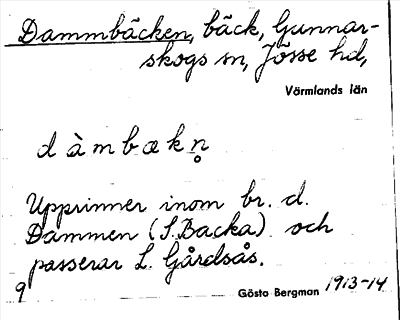 Dammbäcken, bäck, Gunnar-
skogs sn, Jösse hd,
Värmlands län
dàmbækn̥
Upprinner inom br. d.
Dammen (S. Backa) och
passerar L. Gårdsås.
9
Gösta Bergman 1913-14